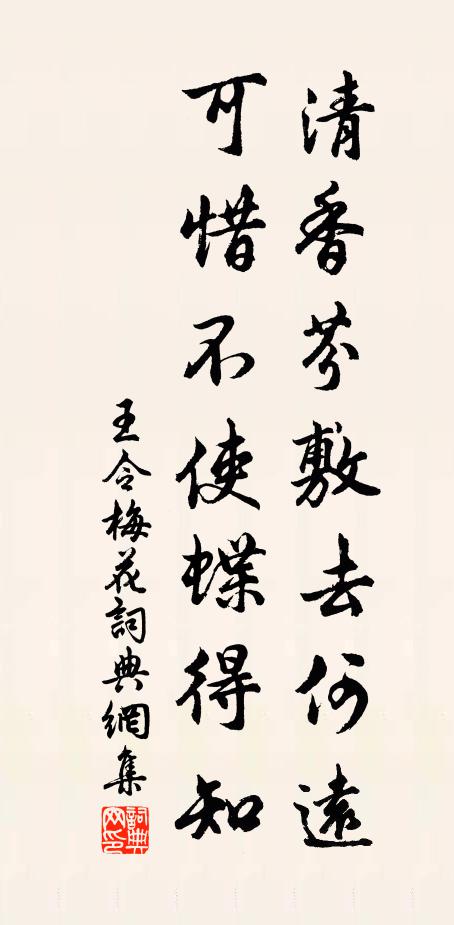 清香芬敷去何遠
可惜不使蝶得知
王令梅花詞典網集
詞典網印